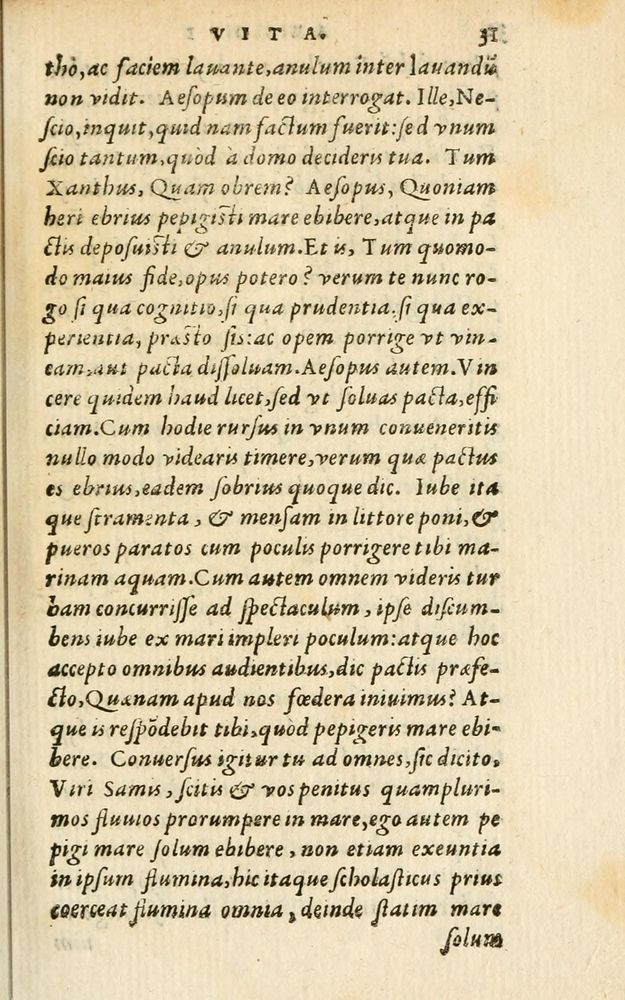 VITA. 31
thò, ac faciem lauante, anulum inter lauandū
non vidit. Aeſopum de eo interrogat. Ille, Ne-
ſcio, inquit, quid nam factum fuerit: ſed vnum
ſcio tantum, quòd à domo decideris tua. Tum
Xanthus, Quam obrem? Aeſopus, Quoniam
heri ebrius pepigisti mare ebibere, atque in pa
ctis depoſuisti & anulum. Et is, Tum quomo-
do maius fide, opus potero? verum te nunc ro-
go ſi qua cognitio, ſi qua prudentia. ſi qua ex-
perientia, præsto ſis: ac opem porrige vt vin-
cam, aut pacta diſſoluam. Aeſopus autem. Vin
cere quidem haud licet, ſed vt ſoluas pacta, effi
ciam. Cum hodie rurſus in vnum conueneritis
nullo modo videaris timere, verum quæ pactus
es ebrius, eadem ſobrius quoque dic. Iube ita
que stramenta, & menſam in littore poni, &
pueros paratos cum poculis porrigere tibi ma-
rinam aquam. Cum autem omnem videris tur
bam concurriſſe ad ſpectaculum, ipſe diſcum-
bens iube ex mari impleri poculum: atque hoc
accepto omnibus audientibus, dic pactis præfe-
cto, Quænam apud nos fœdera iniuimus? At-
que is reſpōdebit tibi, quòd pepigeris mare ebi-
bere. Conuerſus igitur tu ad omnes, ſic dicito,
Viri Samis, ſcitis & vos penitus quampluri-
mos fluuios prorumpere in mare, ego autem pe
pigi mare ſolum ebibere, non etiam exeuntia
in ipſum flumina, hic itaque ſcholaſticus prius
coerceat flumina omnia, deinde ſtatim mare
ſolum